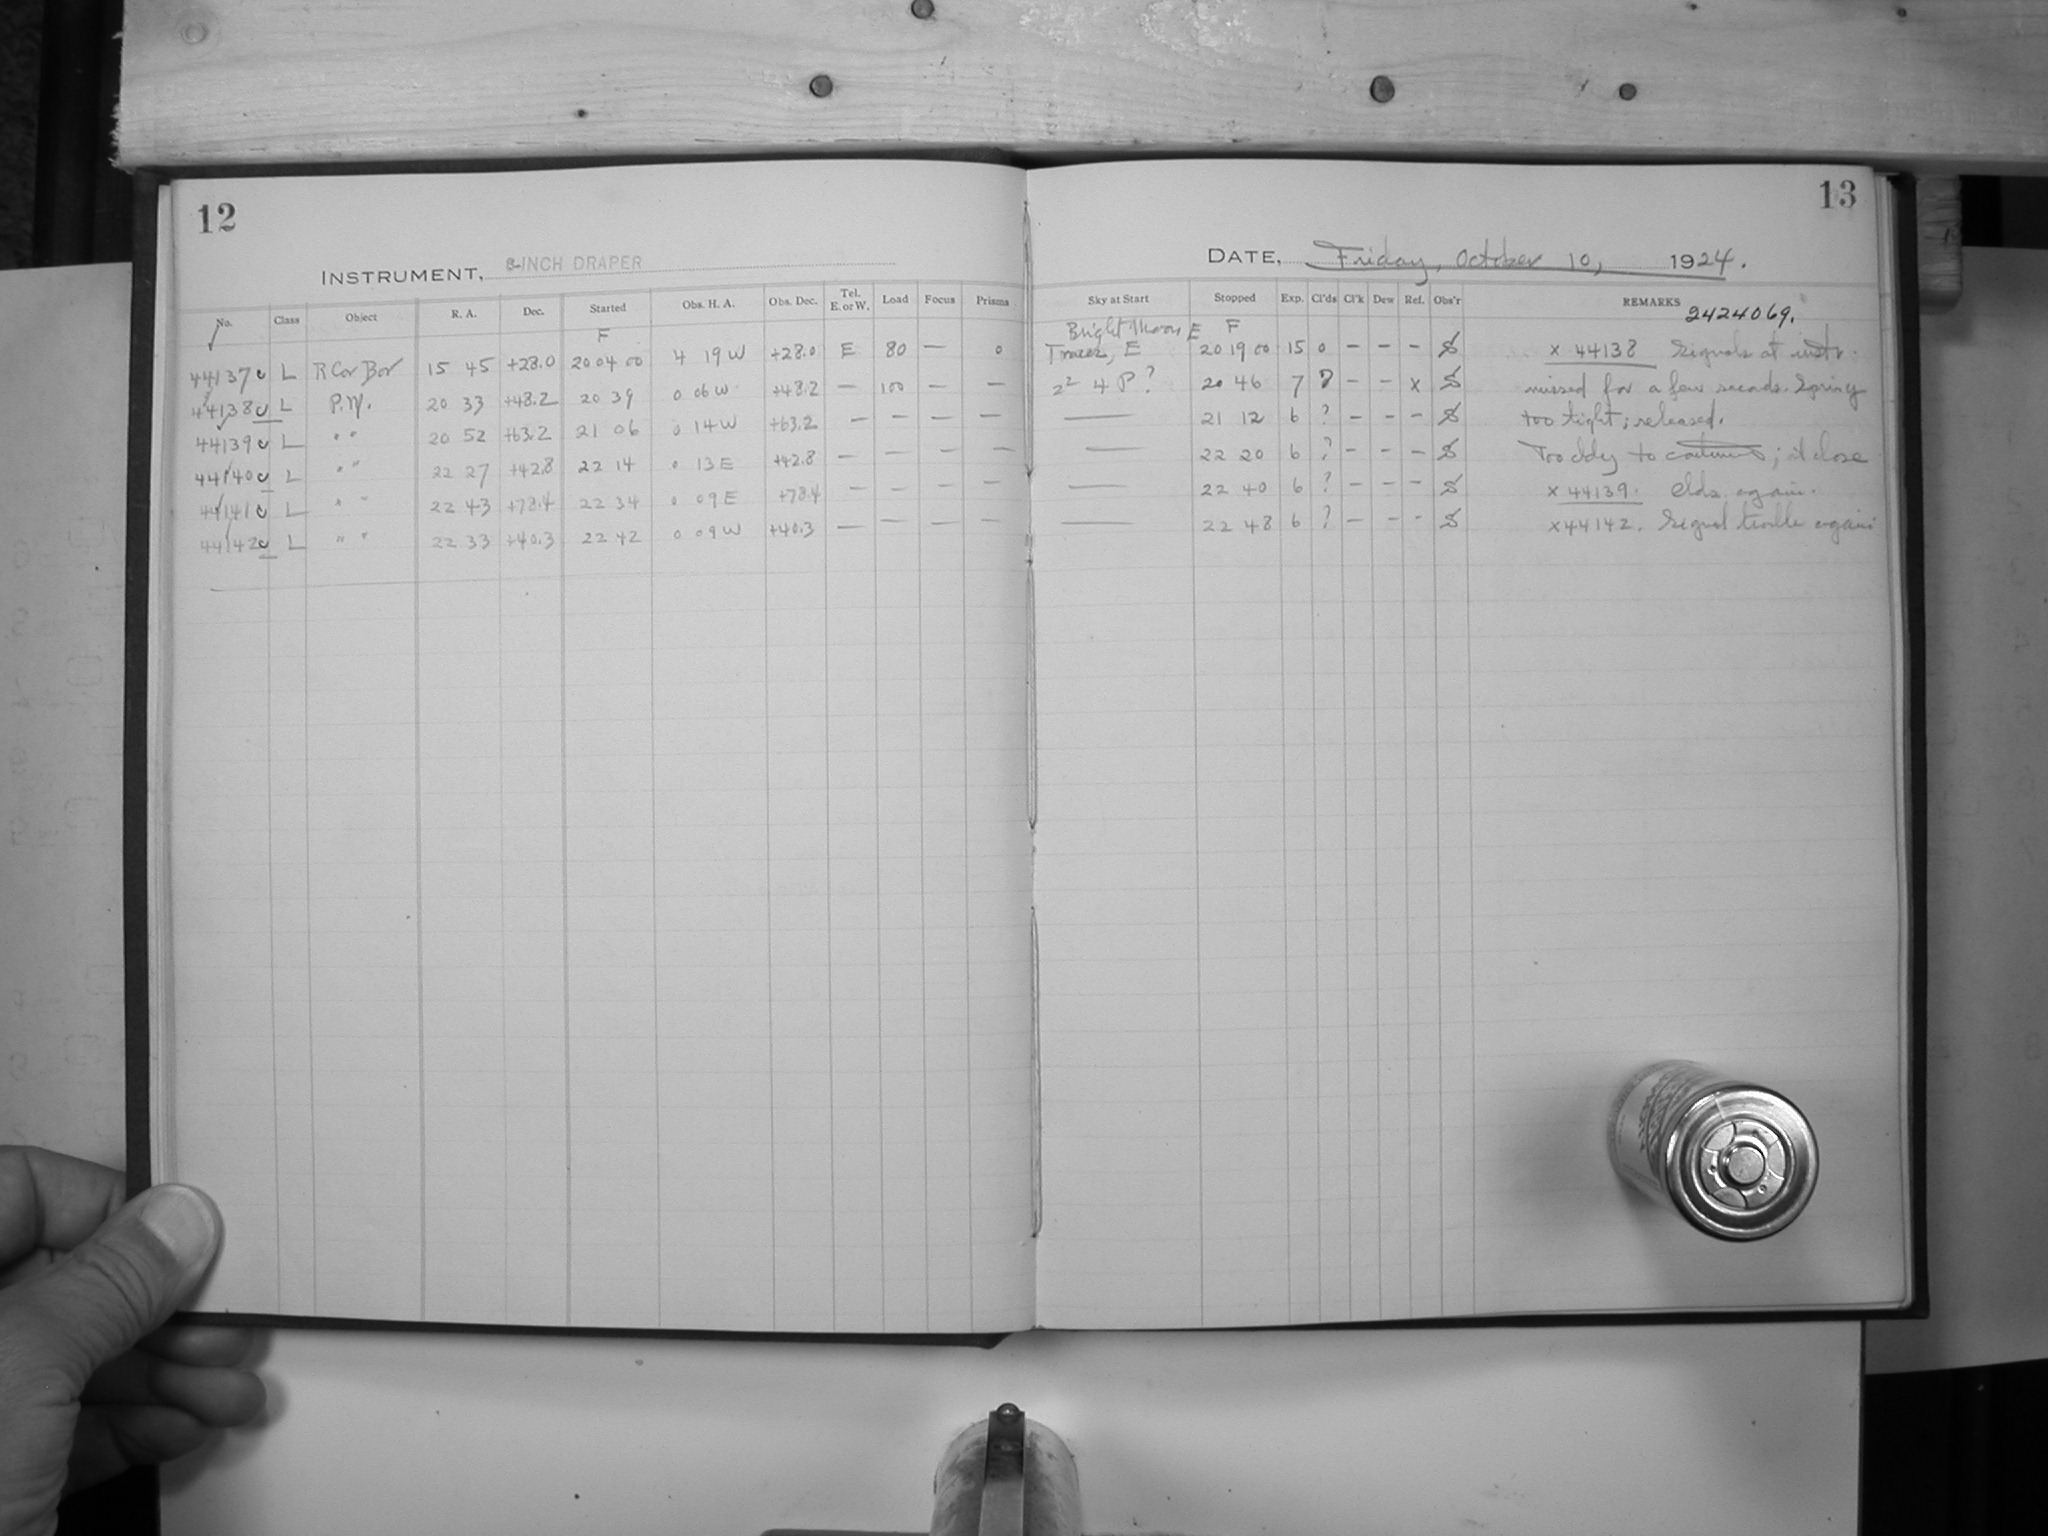 12
INSTRUMENT, 8-INCH DRAPER
No. Class Object R. A. Dec. Started Obs. H. A. Obs. Dec. Tel. E. or W. Load Focus Prisms
F
44137 L R Cor Bor 15 45 +28.0 20 04 00 4 19 W +28.0 E 80 — 0
44138 L P.M. 20 33 +48.2 20 39 0 06 W +48.2 — 100 — —
44139 L " " 20 52 +63.2 21 06 0 14 W +63.2 — — — —
44140 L " " 22 27 +42.8 22 14 0 13 E +42.8 — — — —
44141 L " " 22 43 +78.4 22 34 0 09 E +78.4 — — — —
44142 L " " 22 33 +40.3 22 42 0 09 W +40.3 — — — —
13
DATE, Friday, October 10, 1924.
Sky at Start Stopped Exp. Cl'ds Cl'k Dew Ref. Obs'r REMARKS
2424069.
Bright Moon E F
E 20 19 00 15 0 — — — S x 44138 Signals at instr.
2² 4 P? 20 46 7 ? — — x S missed for a few seconds. Spring
—— 21 12 6 ? — — — S too tight; released.
—— 22 20 6 ? — — — S Too cldy to continue; at close
—— 22 40 6 ? — — — S x 44139. Clds. again.
—— 22 48 6 ? — — — S x 44142. Signal trouble again